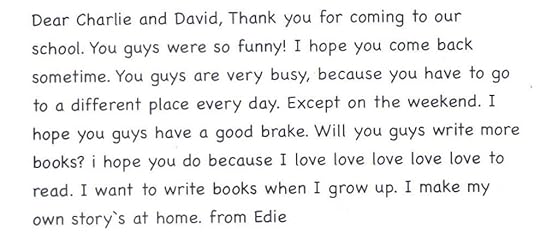 Dear Charlie and David, Thank you for coming to our
school. You guys were so funny! I hope you come back
sometime. You guys are very busy, because you have to go
to a different place every day. Except on the weekend. I
hope you guys have a good brake. Will you guys write more
books? i hope you do because I love love love love love to
read. I want to write books when I grow up. I make my
own story`s at home. from Edie